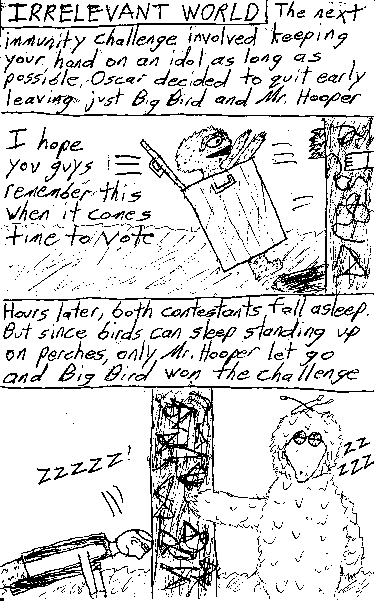 IRRELEVANT WORLD The next
immunity challenge involved keeping
your hand on an idol as long as
possible. Oscar decided to quit early
leaving just Big Bird and Mr. Hooper
I hope
you guys
remember this
when it comes
time to vote
Hours later, both contestants fall asleep.
But since birds can sleep standing up
on perches, only Mr. Hooper let go
and Big Bird won the challenge
ZZZZZ!
ZZ
ZZZ